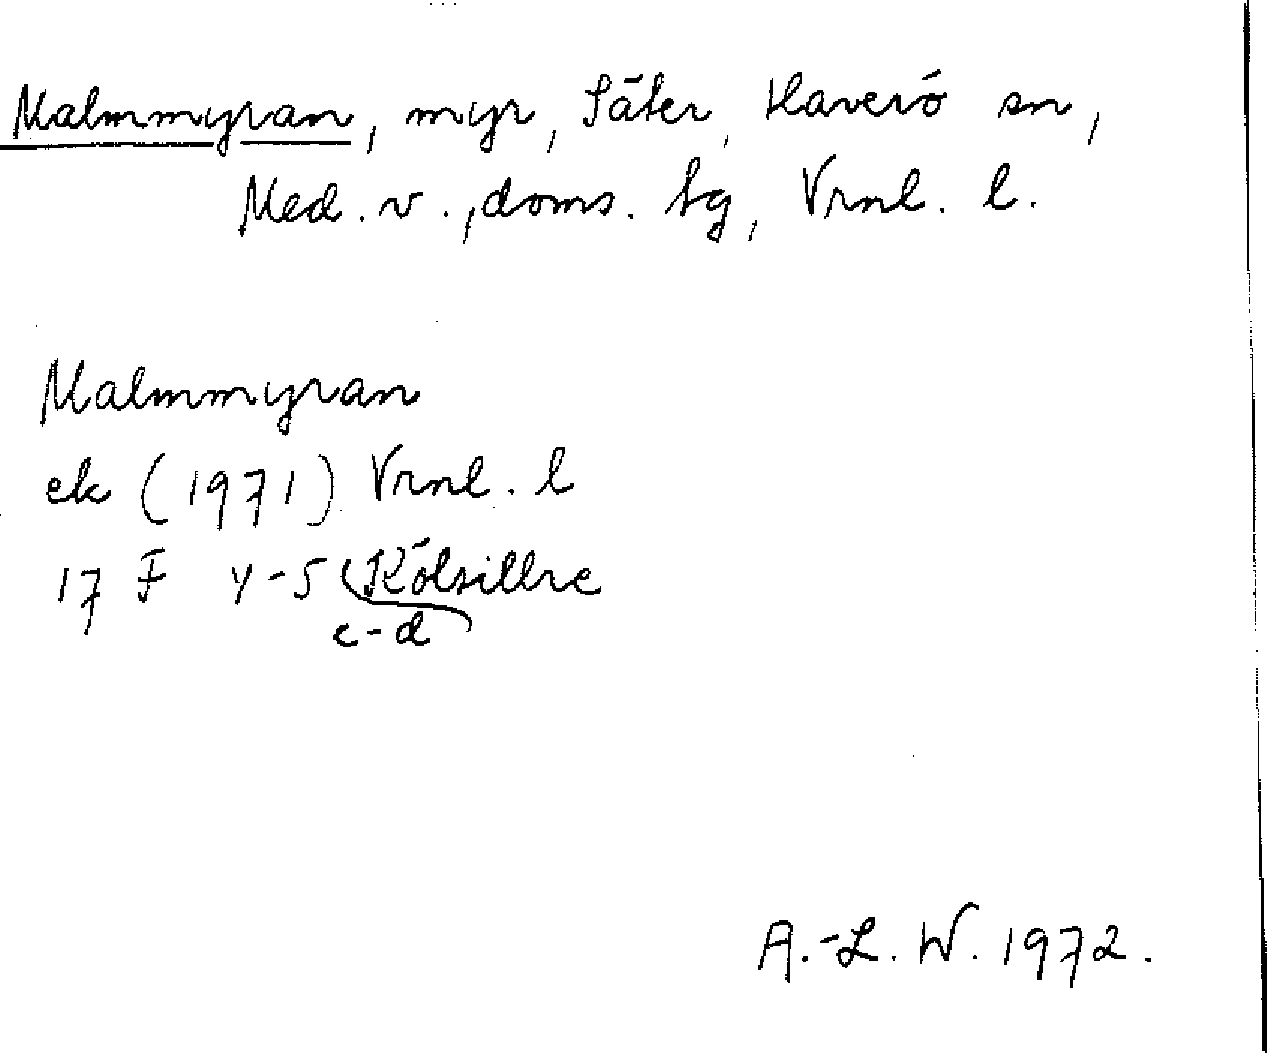 Malmmyran, myr, Säter, Haverö sn,
Med. v., doms. tg, Vrnl. l.
Malmmyran
ek (1971) Vrnl. l
17 F y-5 (Kölsillre
c-d
A.-L. W. 1972.